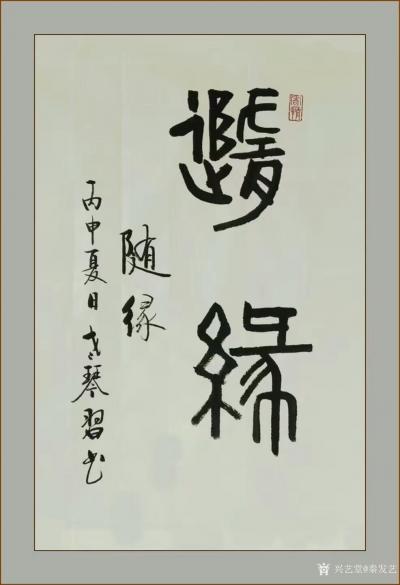 隨緣
随缘
丙申夏日
琴習书
兴艺堂@秦发艺